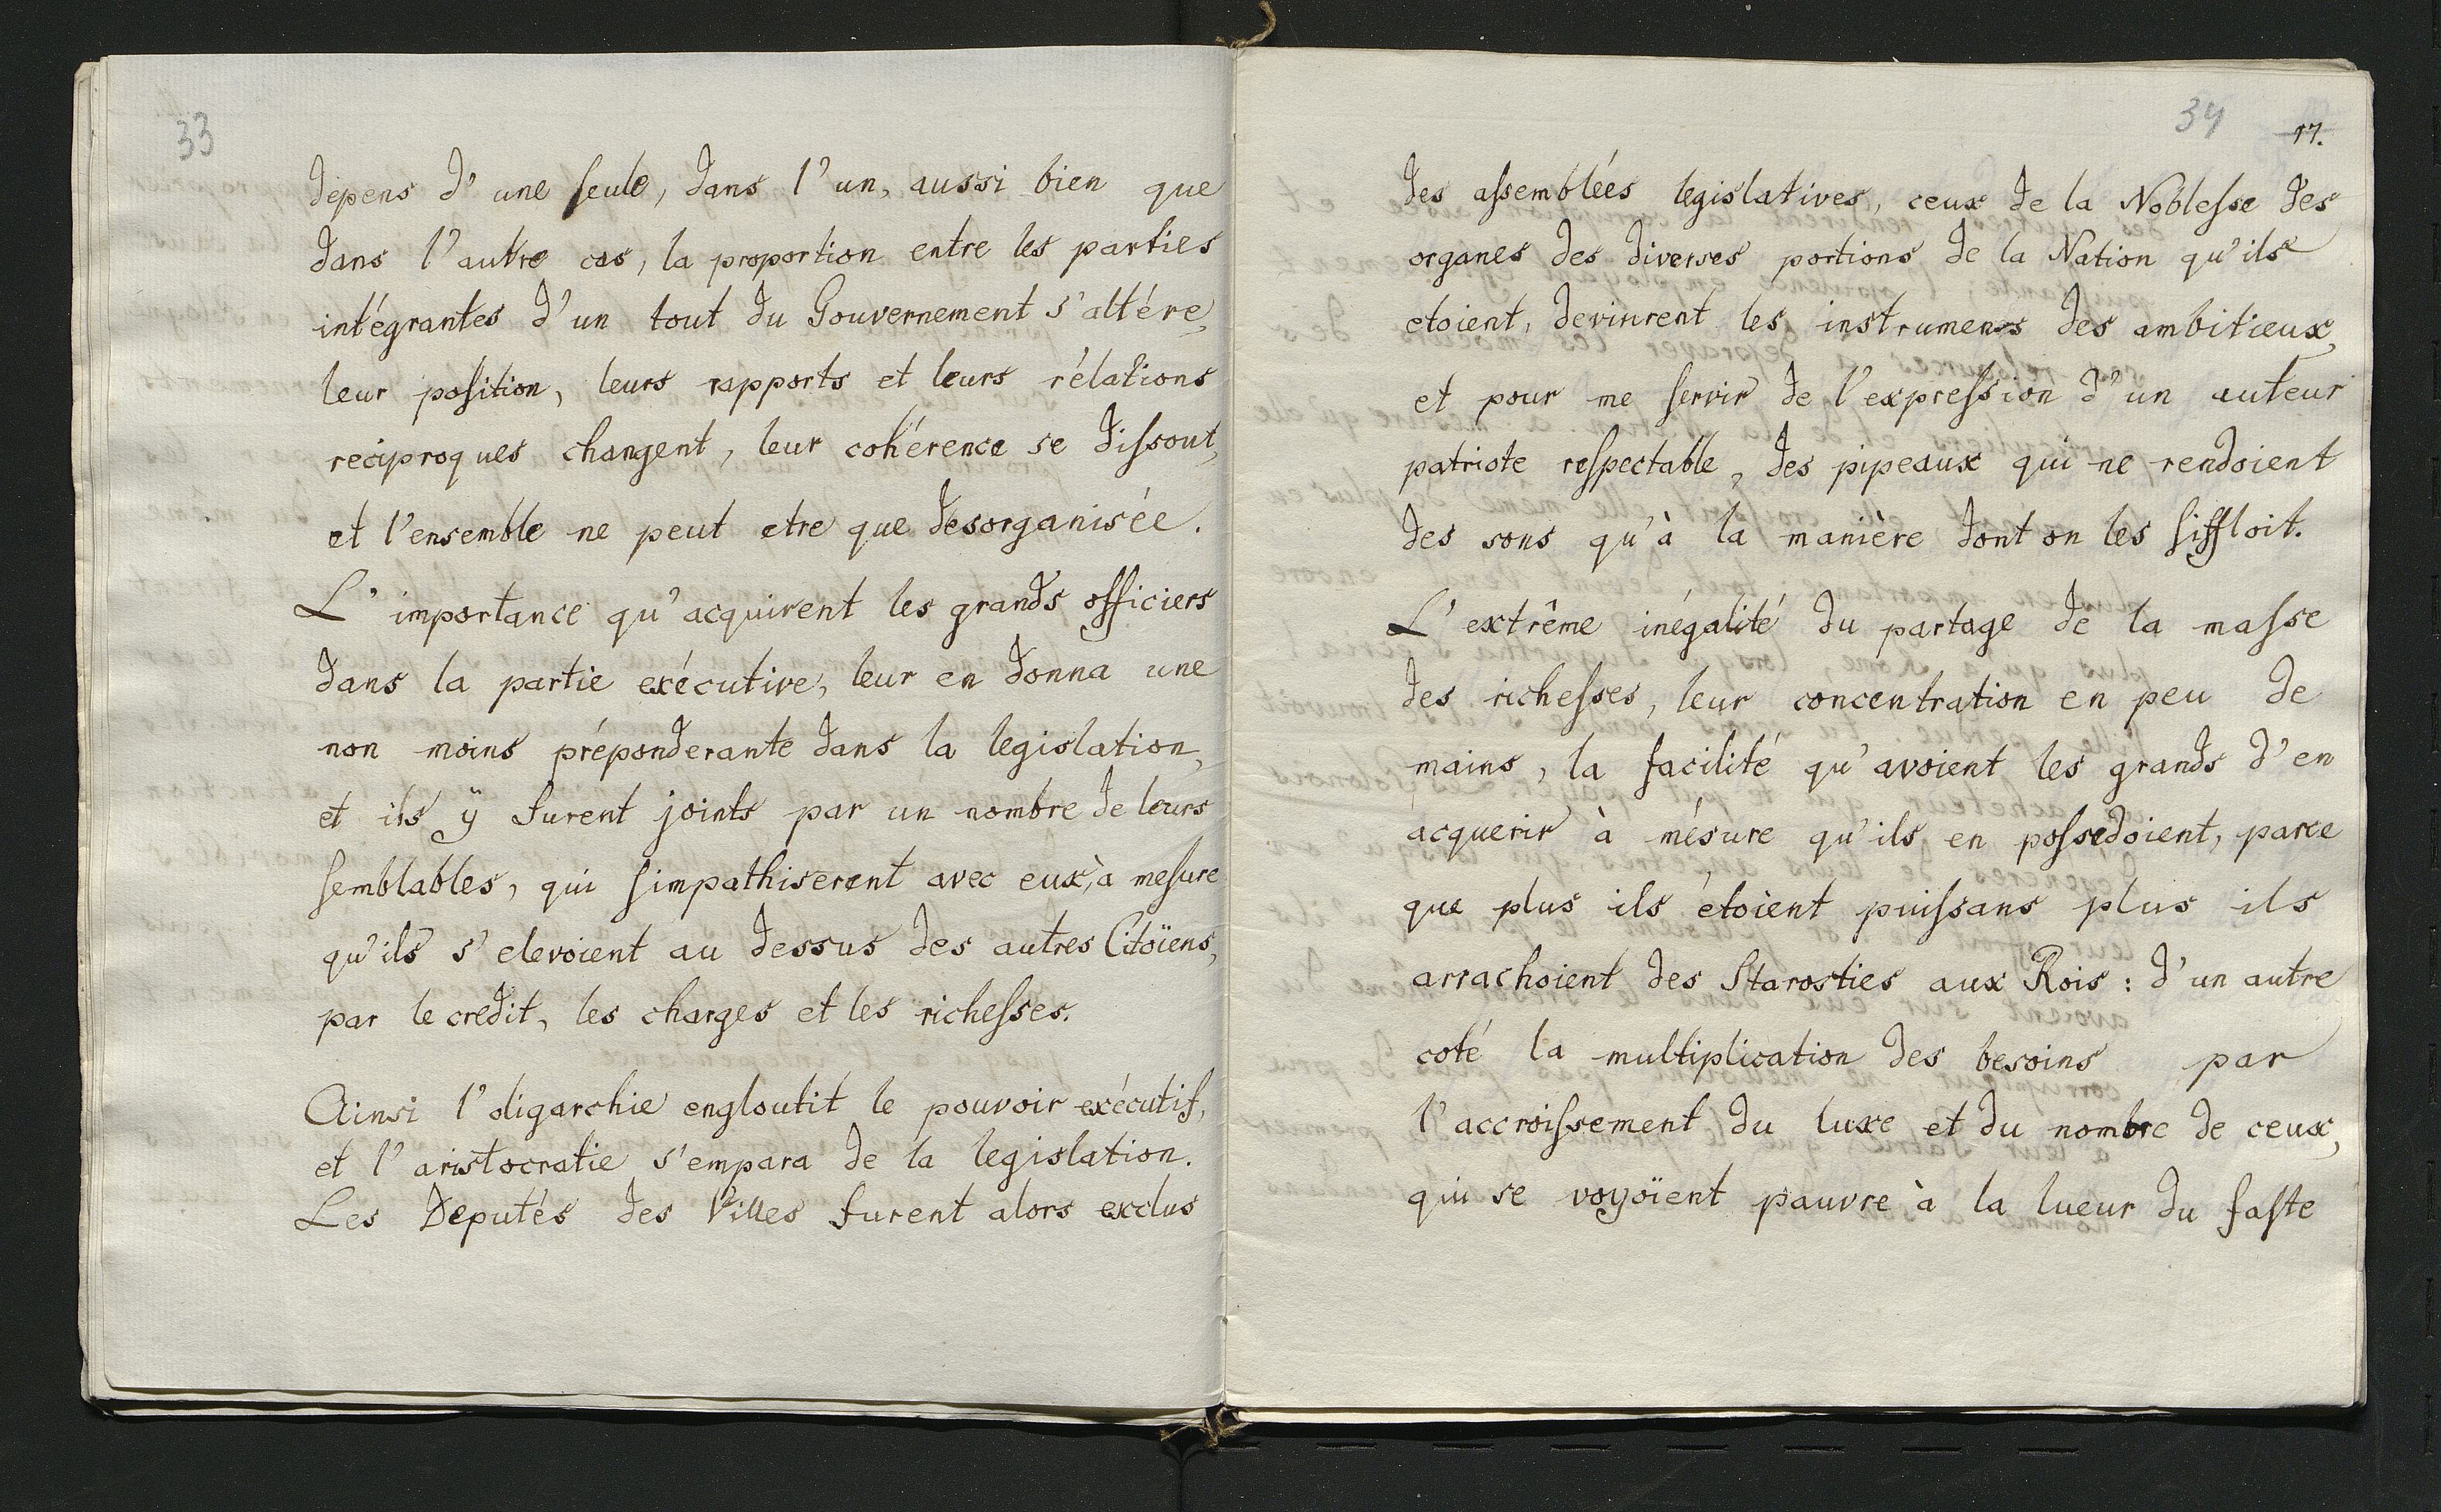 33
depens d'une seule, dans l'un, aussi bien que
dans l'autre cas, la proportion entre les parties
intégrantes d'un tout du Gouvernement s'altére,
leur position, leurs rapports et leurs rélations
reciproques changent, leur cohérence se dissout,
et l'ensemble ne peut etre que desorganisée.
L'importance qu'acquirent les grands officiers
dans la partie exécutive, leur en donna une
non moins préponderante dans la legislation,
et ils ÿ furent joints par un nombre de leurs
semblables, qui simpathiserent avec eux, a mesure
qu'ils s'elevoient au dessus des autres Citoïens,
par le credit, les charges et les richesses.
Ainsi l'oligarchie engloutit le pouvoir exécutif,
et l'aristocratie s'empara de la legislation.
Les Deputés des Villes furent alors exclus
34 17.
des assemblées legislatives, ceux de la Noblesse des
organes des diverses portions de la Nation qu'ils
etoient, devinrent les instrumens des ambitieux,
et pour me servir de l'expression d'un auteur
patriote respectable, des pipeaux qui ne rendoient
des sons qu'à la manière dont on les siffloit.
L'extrême inégalité du partage de la masse
des richesses, leur concentration en peu de
mains, la facilité qu'avoient les grands d'en
acquerir à mésure qu'ils en possedoient, parce
que plus ils étoient puissans plus ils
arrachoient des Starosties aux Rois : d'un autre
coté la multiplication des besoins par
l'accroissement du luxe et du nombre de ceux,
qui se voyoïent pauvre à la lueur du faste